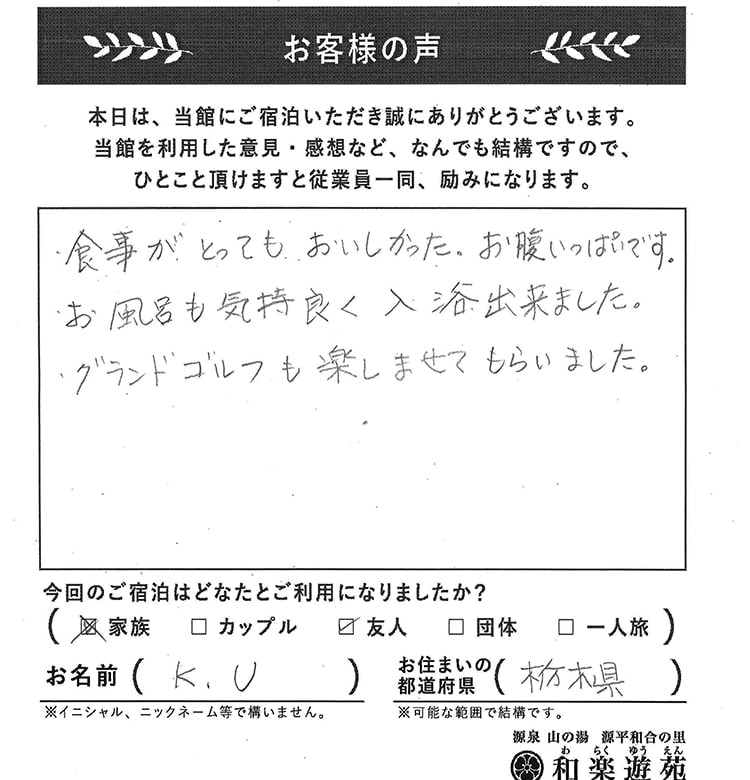 お客様の声
本日は、当館にご宿泊いただき誠にありがとうございます。
当館を利用した意見・感想など、なんでも結構ですので、
ひとこと頂けますと従業員一同、励みになります。
・食事がとってもおいしかった。お腹いっぱいです。
・お風呂も気持良く入浴出来ました。
・グランドゴルフも楽しませてもらいました。
今回のご宿泊はどなたとご利用になりましたか？
(☒家族 □カップル ☑友人 □団体 □一人旅)
お名前(K.U) お住まいの都道府県(栃木県)
※イニシャル、ニックネーム等で構いません。 ※可能な範囲で結構です。
源泉 山の湯 源平和合の里
わ らく ゆう えん
和楽遊苑